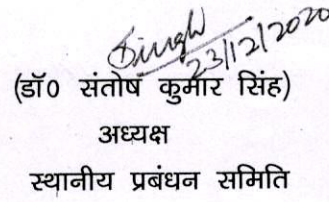 Singh
23/12/2020
(डॉ0 संतोष कुमार सिंह)
अध्यक्ष
स्थानीय प्रबंधन समिति